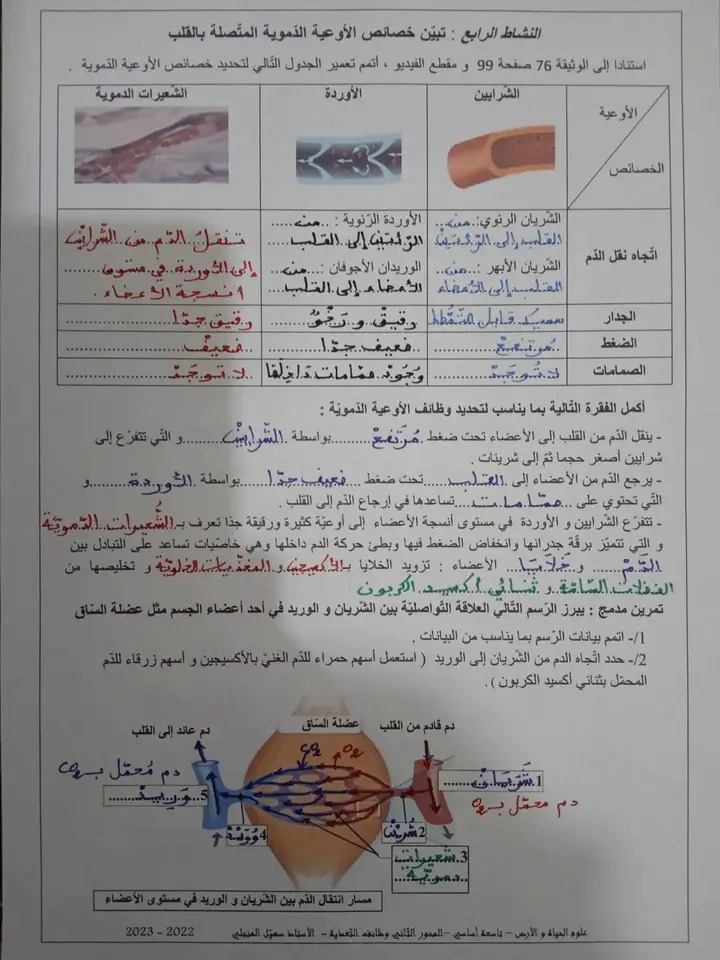 النشاط الرابع : تبيّن خصائص الأوعية الدّموية المتّصلة بالقلب
استنادا إلى الوثيقة 76 صفحة 99 و مقطع الفيديو ، أتمم تعمير الجدول التّالي لتحديد خصائص الأوعية الدّموية .
الأوعية
الخصائص
الشّرايين
الأوردة
الشّعيرات الدموية
اتّجاه نقل الدّم
الشّريان الرئوي: من
القلب إلى الرّئتين
الشّريان الأبهر : من
القلب إلى الأعضاء
الأوردة الرّئوية : من
الرّئتين إلى القلب
الوريدان الأجوفان : من
الأعضاء إلى القلب
تنقل الدّم من الشّرايين
إلى الأوردة في مستوى
أنسجة الأعضاء .
الجدار
سميك قابل للتّمطّط
رقيق و رخو
رقيق جدّا
الضغط
مرتفع
ضعيف جدّا
ضعيف
الصمامات
لا توجد
وجود صمّامات داخلها
لا توجد
أكمل الفقرة التّالية بما يناسب لتحديد وظائف الأوعية الدّمويّة :
- ينقل الدّم من القلب إلى الأعضاء تحت ضغط مرتفع بواسطة الشّرايين و التّي تتفرّع إلى
شرايين أصغر حجما ثمّ إلى شرينات .
- يرجع الدّم من الأعضاء إلى القلب تحت ضغط ضعيف جدّا بواسطة الأوردة و
التّي تحتوي على صمّامات تساعدها في إرجاع الدّم إلى القلب .
- تتفرّع الشّرايين و الأوردة في مستوى أنسجة الأعضاء إلى أوعيّة كثيرة ورقيقة جدّا تعرف بـ الشّعيرات الدّمويّة
و التي تتميّز برقّة جدرانها وانخفاض الضغط فيها وبطئ حركة الدم داخلها وهي خاصّيات تساعد على التبادل بين
الدّم و خلايا الأعضاء : تزويد الخلايا بـ الأكسيجين و المغذيات الخلويّة و تخليصها من
الفضلات السّامّة و ثنائي أكسيد الكربون
تمرين مدمج : يبرز الرّسم التّالي العلاقة التّواصليّة بين الشّريان و الوريد في أحد أعضاء الجسم مثل عضلة السّاق
1/- اتمم بيانات الرّسم بما يناسب من البيانات .
2/- حدد اتّجاه الدم من الشّريان إلى الوريد ( استعمل أسهم حمراء للدّم الغنيّ بالأكسيجين و أسهم زرقاء للدّم
المحمّل بثنائي أكسيد الكربون ) .
دم قادم من القلب
عضلة السّاق
دم عائد إلى القلب
O2
CO2
1. شريان
دم محمّل بـ O2
2 شرين
3. شعيرات
دمويّة
4 وريد
5. وريد
دم محمّل بـ CO2
مسار انتقال الدّم بين الشّريان و الوريد في مستوى الأعضاء
علوم الحياة و الأرض – تاسعة أساسي – المحور الثّاني وظائف التّغذية – الأستاذ
2022 - 2023